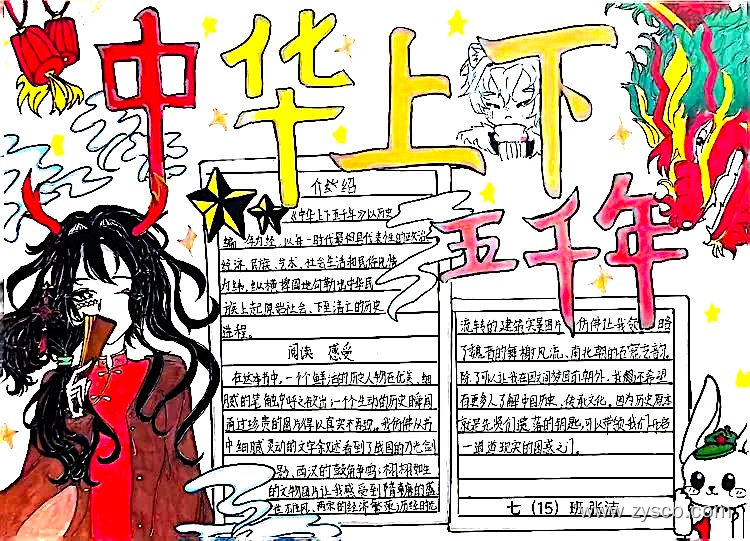 中华上下
五千年
介绍
《中华上下五千年》以历史
编年为经,以每一时代最具代表性的政治
经济、民族、艺术、社会生活和民俗风情
为纬,纵横捭阖地勾勒出中华民
族上起原始社会、下至清亡的历史
进程。
阅读 感受
在这本书中,一个个鲜活的历史人物在优美、细
腻的笔触中呼之欲出;一个个生动的历史瞬间
通过珍贵的图片得以真实再现。我仿佛从书
中细腻灵动的文字叙述看到了战国的刀光剑
影、两汉的鼓角争鸣;栩栩如生
的文物图片让我感受到隋唐的盛
世 风、两宋的经济繁荣;历经时光
流转的建筑实景图片 仿佛让我领略
了魏晋的舞榭风流、南北朝的石窟之韵
除了可以让我在回文间梦回前朝外,我想还希望
有更多人了解中国历史、传承文化。因为历史原本
就是先贤们遗落的钥匙,可以带领我们开启
一道道现实的困惑之门。
七(15)班 张洁
www.zysco.com